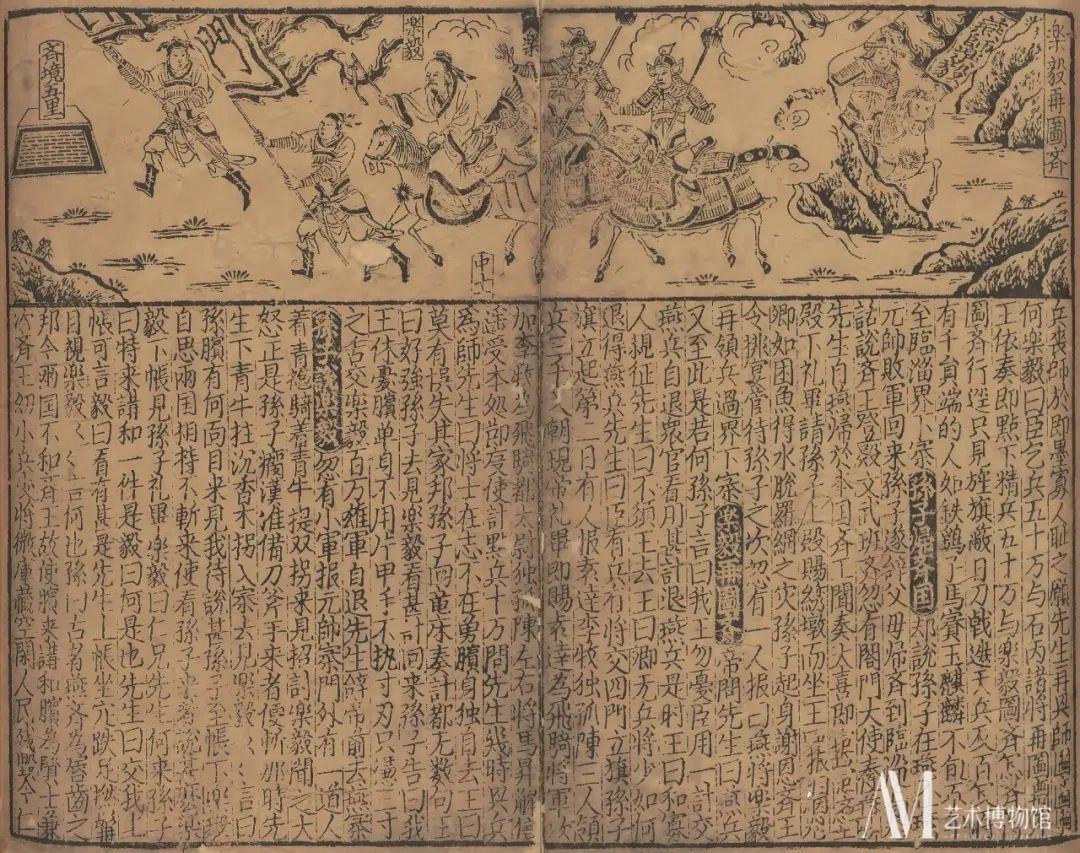 樂毅再圖斉
樂毅
門
斉境五里
兵喪師於即墨寡人耻之願先生再興師
何樂毅曰臣乞兵五十万与石丙諸將再圖
王依奏即點下精兵五十万与樂毅圖斉
圖斉行逕只見旌旗蔽日刀戟遮天兵及百万
有千員端的人如鉄鷂了馬賽玉麒麟不旬日
至臨淄界下寨 孫子歸斉国 却說孫子在燕
元帥敗軍回來孫子遂辞父母帰斉到臨淄
話說斉王登殿文武班斉忽有閤門大使奏
先生自燕歸於本国斉王聞奏大喜即
殿下礼畢請孫子上殿賜綉墩而坐王
卿如困魚得水脫羅網之灾孫子起身謝恩斉王
令排宴管待孫子之次忽有一人报曰燕將樂毅
再領兵過界下寨 樂毅再圖斉 帝問先生曰
又至此是若何孫子言曰我王勿憂臣用一計交
燕兵自退衆官看用甚計退燕兵是时王曰和寡
人親征先生曰不須王去王曰卿无兵將少如何
退得燕兵先生曰臣有兵有將交四門立旗孫子
旗立起第二日有人报袁達李牧独孤陳三人領
兵三千人朝現帝礼畢即賜袁達為飛騎將軍
加李牧為飛騎都太尉独孤陳左右將軍昇解信
遥受本処節度使計點兵十万問先生幾時興兵
為師先生曰將士在志不在勇臏身独自去王曰
莫有悞失其家邦孫子囬奏計都无数向王
曰好強孫子去見樂毅看甚言囬來孫子告曰我
王休憂臏单身不用片甲手不执寸刃只憑三寸
之舌交樂毅百万雄軍自退先生辞帝前去燕
孫子說樂毅 忽有小軍报元帥寨門外有一道人
着青袍騎着青牛提双拐來見招討樂毅聞之大
怒正是孫子癘漢准备刀斧手來者便斬那時先
生下青牛拄沉香木拐入寨去見樂毅〻言曰
孫臏有何面目來見我待說孫子至帳下
自思兩国相持不斬來使看孫子來意說甚
毅下帳見孫子礼畢樂毅曰仁兄先生何來孫子
曰特來講和一件是毅曰何是也先生曰交我上
帳可言毅曰看有甚是先生上帳坐定跌足
目視樂毅〻言何也孫子曰古者燕斉為唇齒之
邦今兩国不和斉王故使臏來講和臏為賢士兼
斉王紉小兵少將微庫藏空闕人民残
艺术博物馆